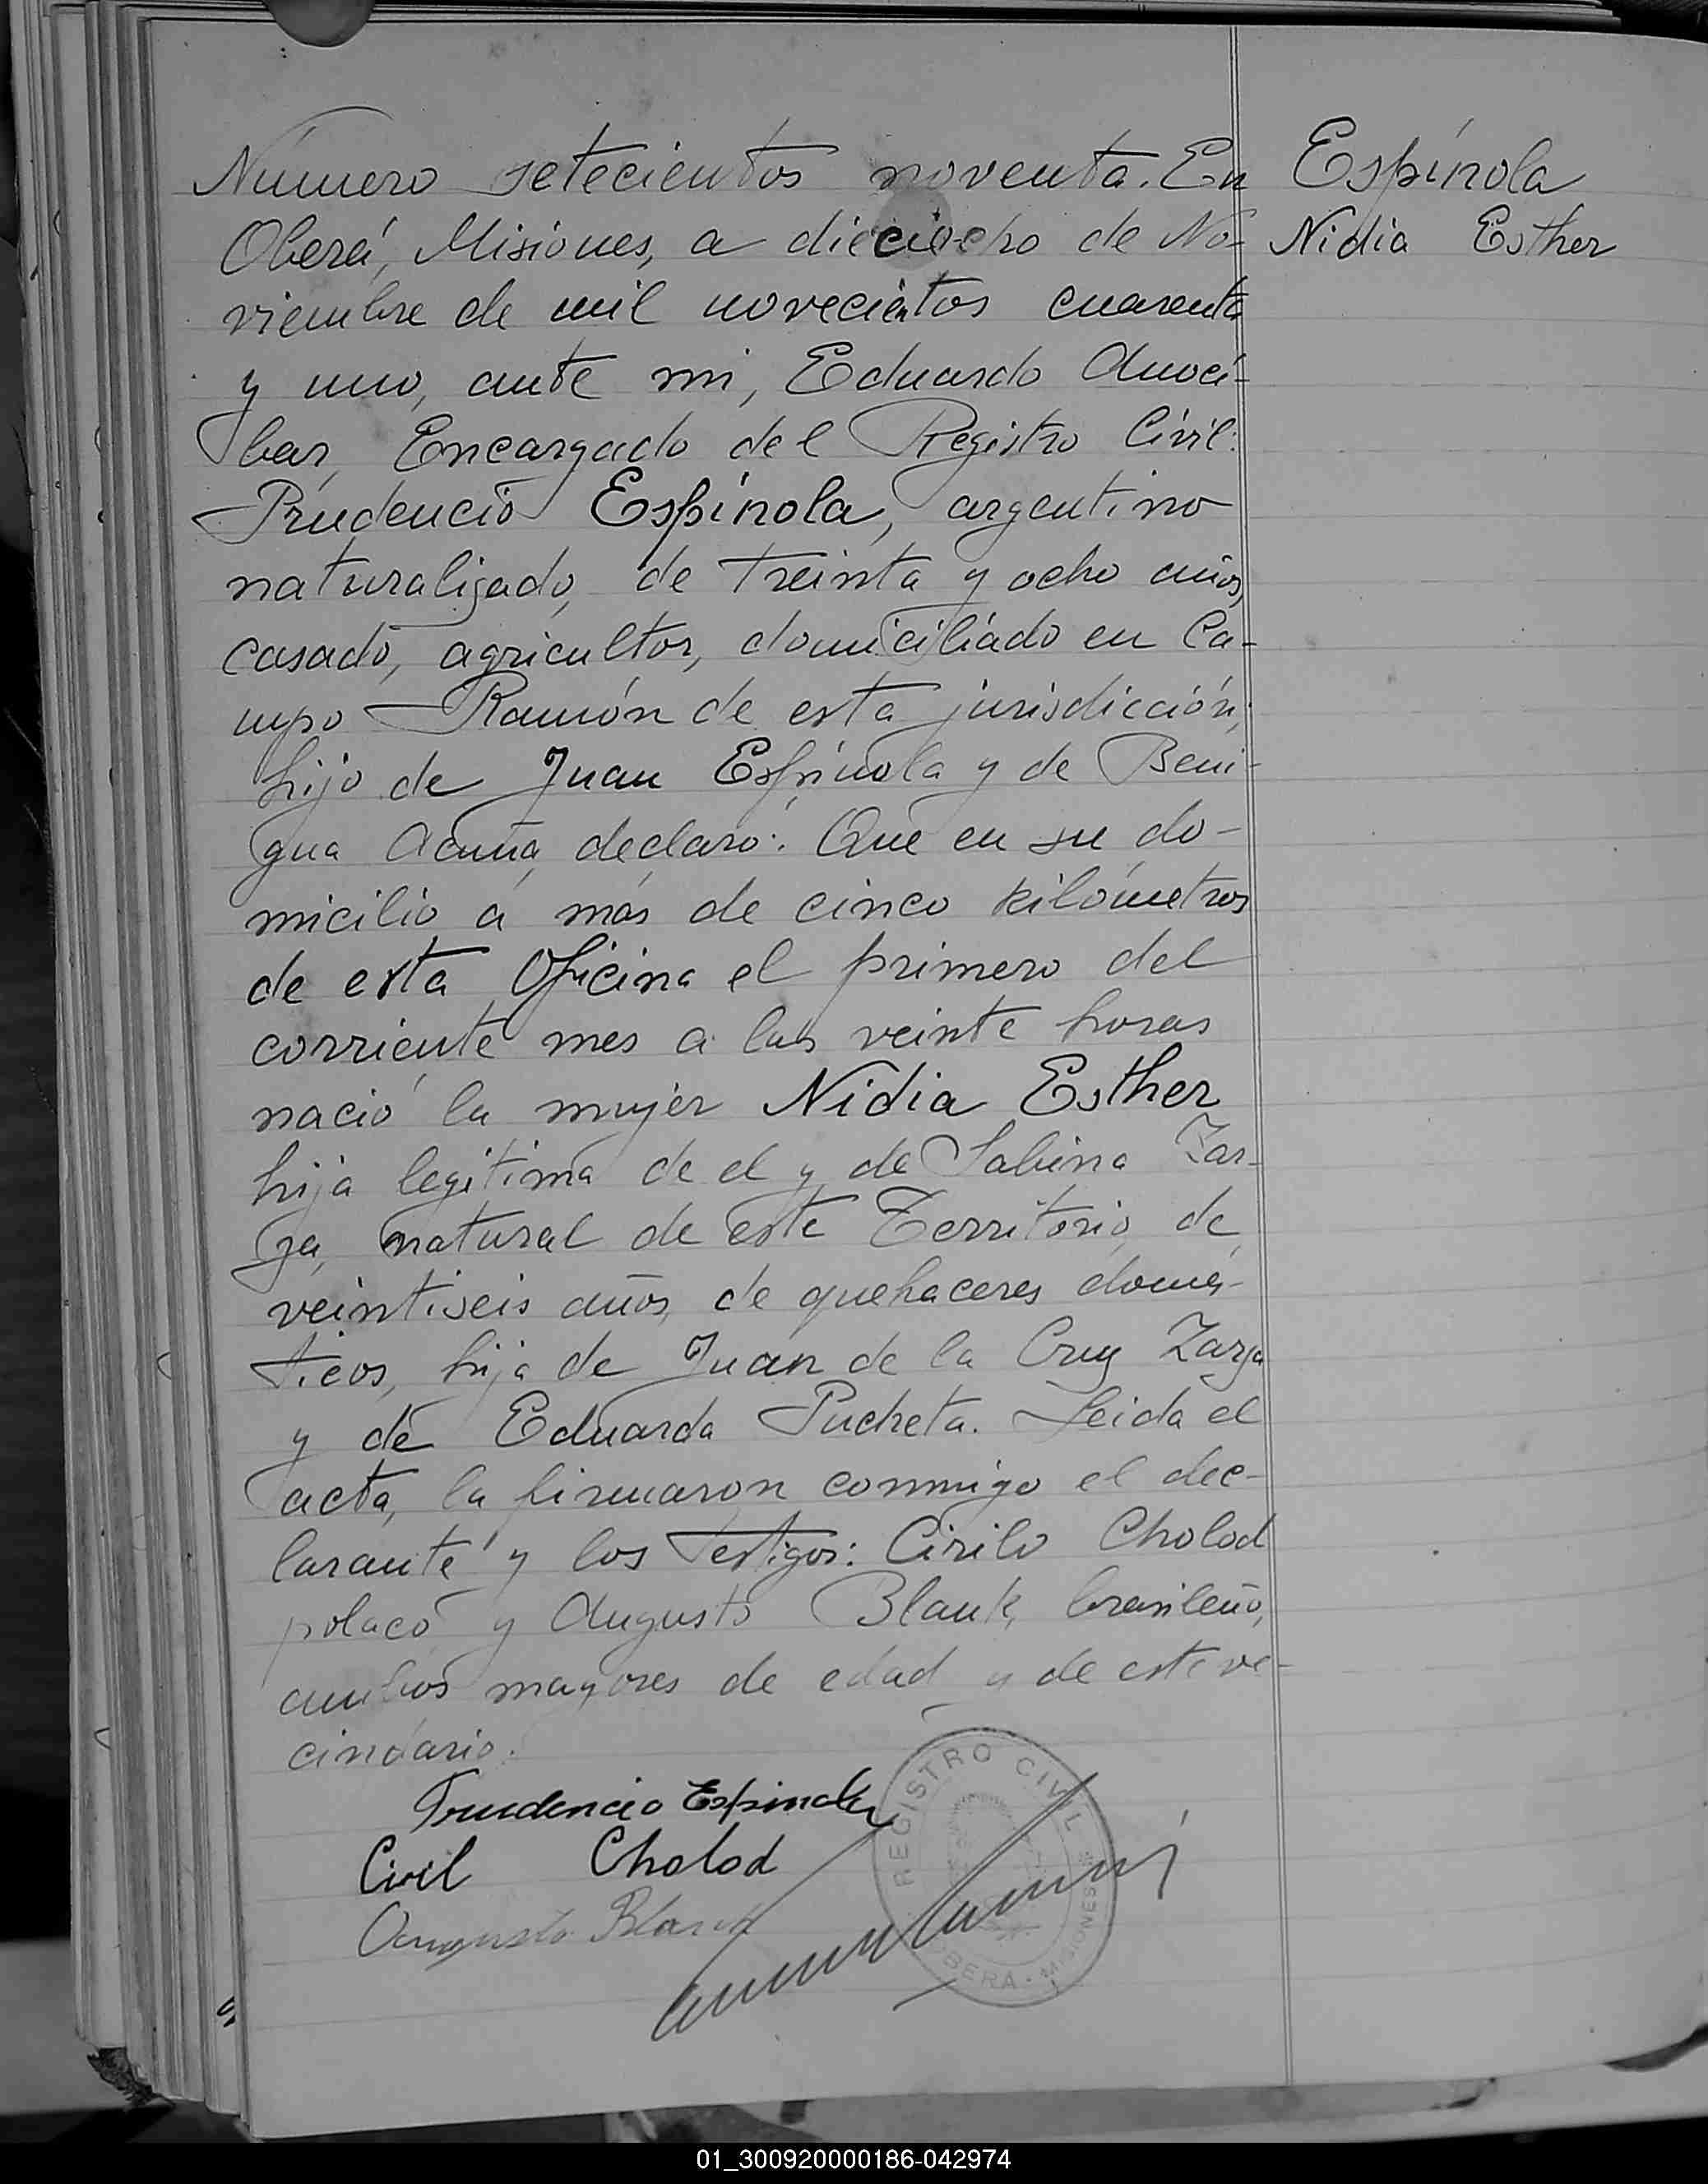 Número setecientos noventa. En
Oberá, Misiones, a dieciocho de No-
viembre de mil novecientos cuarenta
y uno, ante mi, Eduardo Amocí-
bar, Encargado del Registro Civil:
Prudencio Espínola, argentino
naturalizado, de treinta y ocho años,
casado, agricultor, domiciliado en Ca-
mpo Ramón de esta jurisdicción,
hijo de Juan Espínola y de Beni-
gna Acuña, declaró: Que en su do-
micilio a más de cinco kilómetros
de esta Oficina el primero del
corriente mes a las veinte horas
nació la mujer Nidia Esther
hija legítima de el y de Sabina Zar-
za, natural de este Territorio, de
veintiseis años, de quehaceres domés-
ticos, hija de Juan de la Cruz Zarza
y de Eduarda Pucheta. Leida el
acta, la firmaron conmigo el dec-
larante y los testigos: Cirilo Cholod
polaco y Augusto Blank, brasileño,
ambos mayores de edad y de este ve-
cindario.
Espínola
Nidia Esther
Prudencio Espinola
Ciril Cholod
Augusto Blank
REGISTRO CIVIL
OBERA - MISIONES
01_300920000186-042974